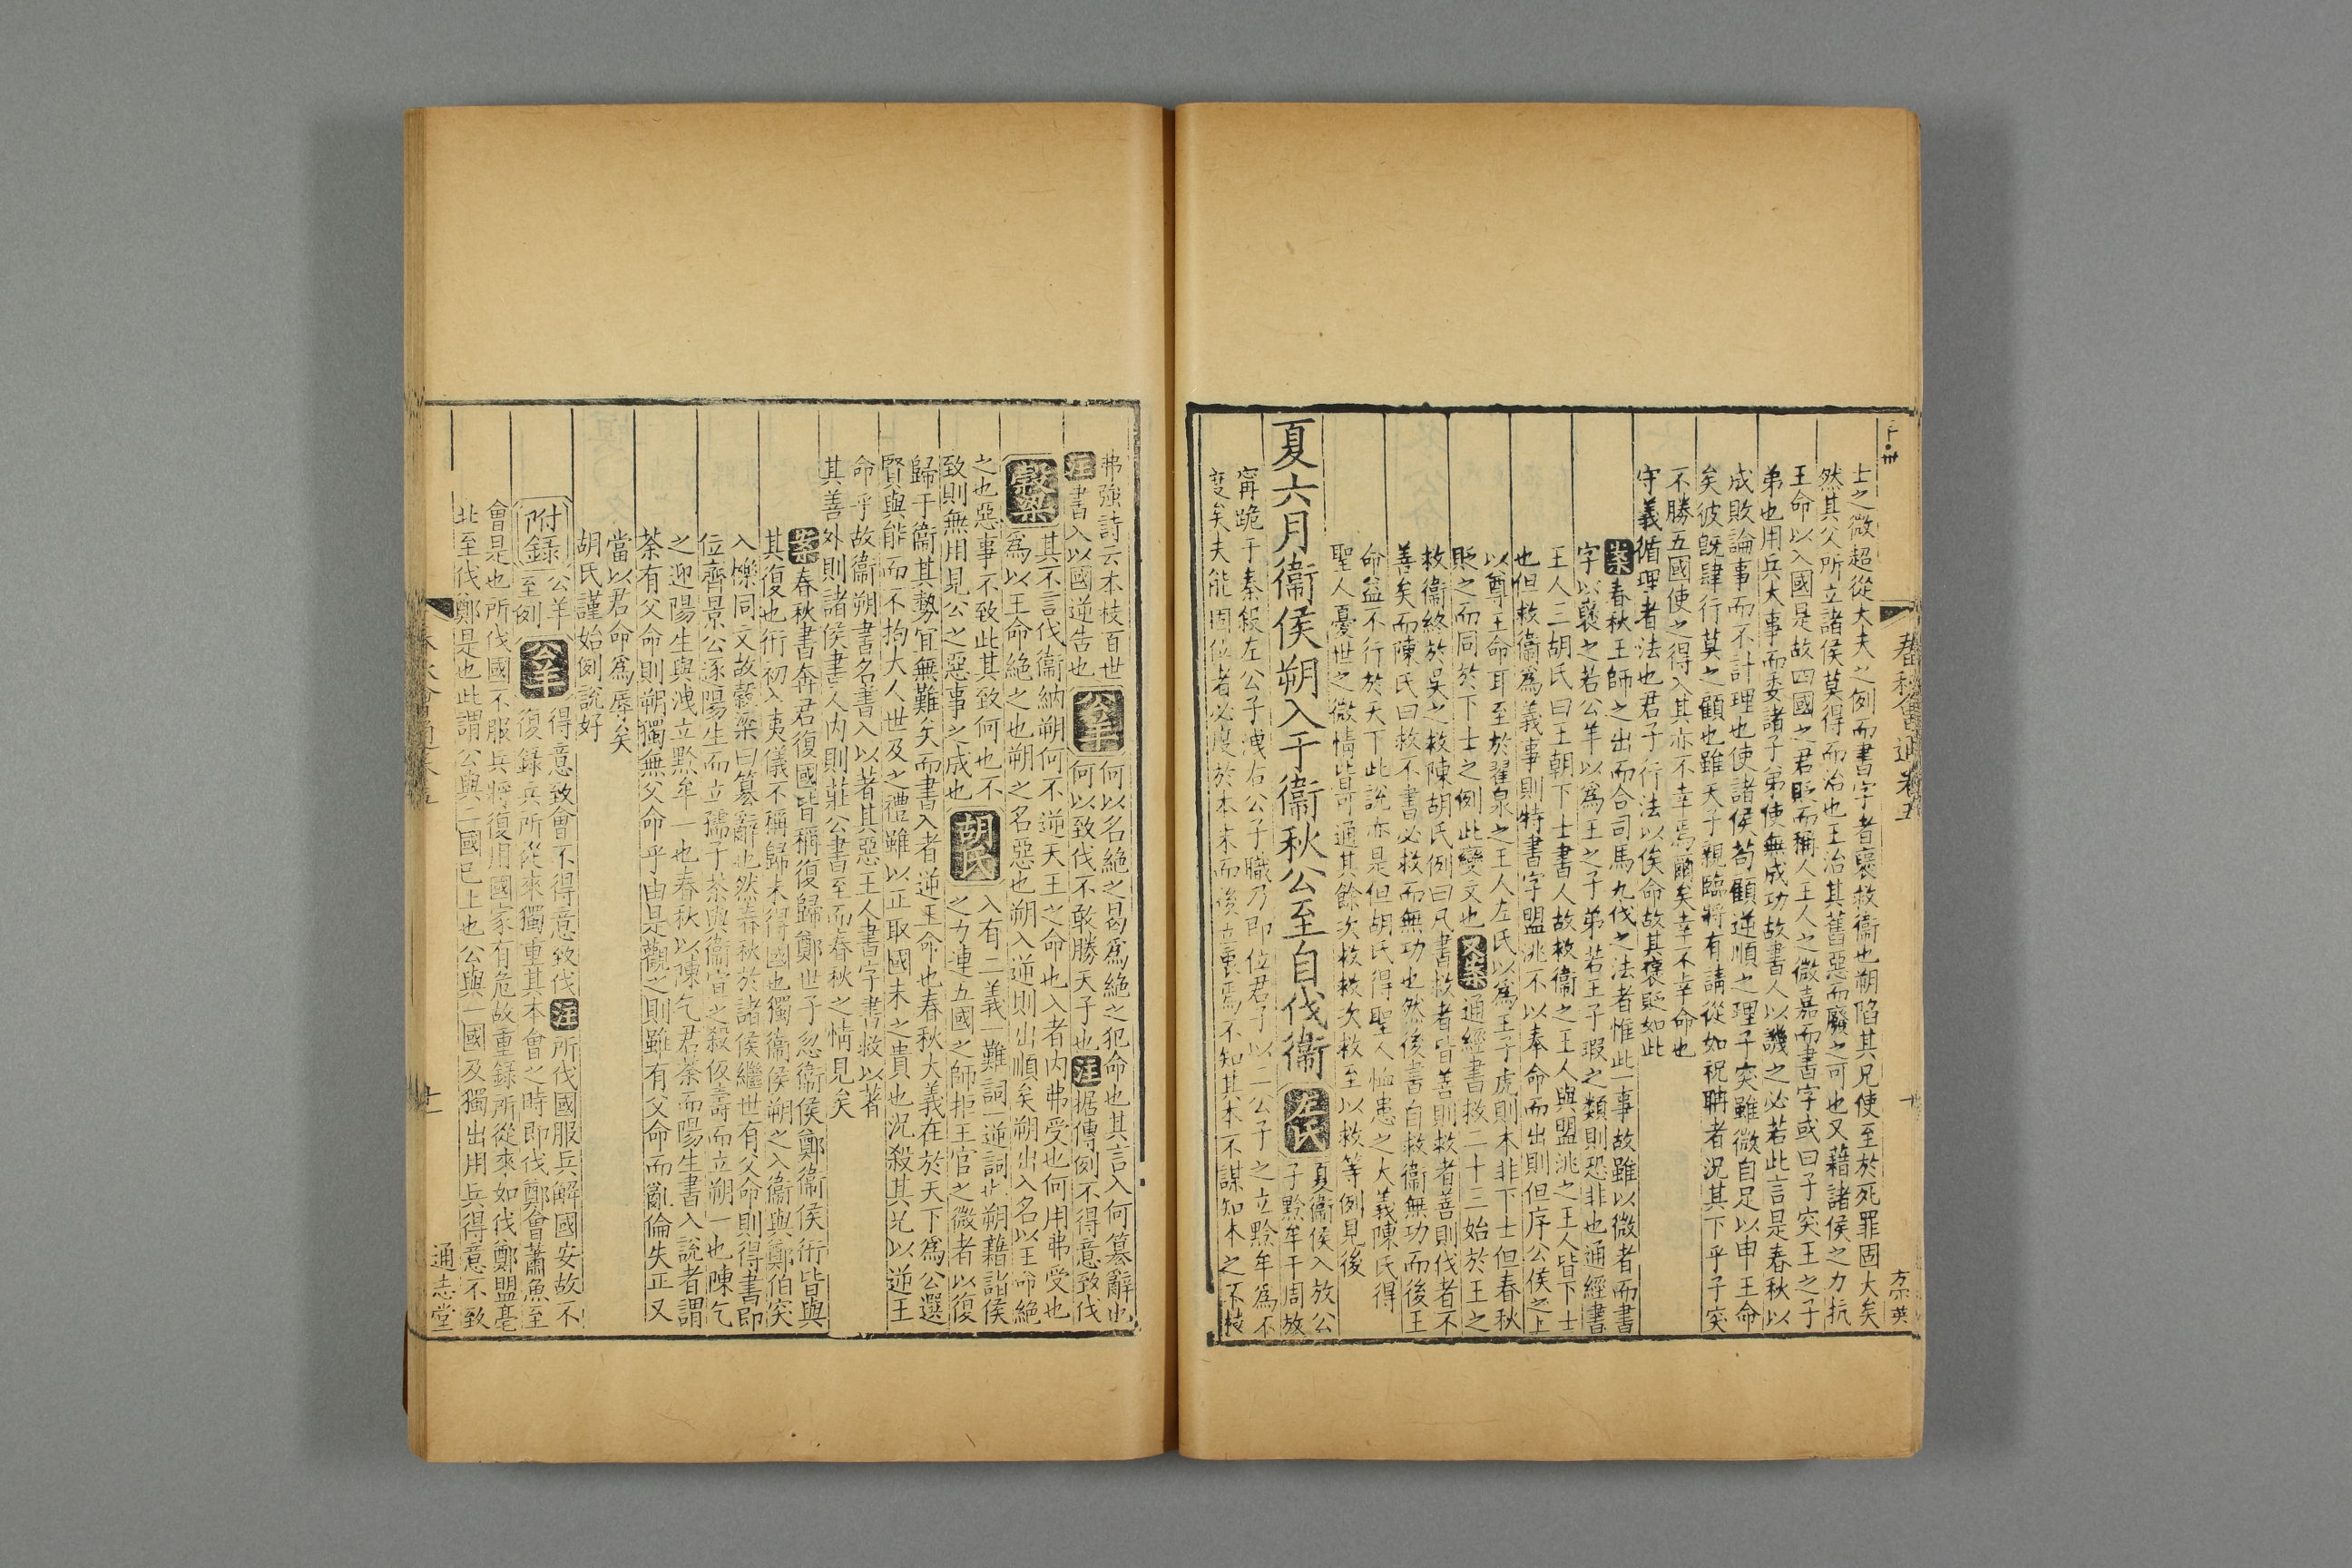 士之微超從大夫之例而書字者襃救衞也朔陷其兄使至於死罪固大矣
然其父所立諸侯莫得而治也王治其舊惡而廢之可也又藉諸侯之力抗
王命以入國是故四國之君貶而稱人王人之微嘉而書字或曰子突王之子
弟也用兵大事而委諸子弟使無成功故書人以譏之必若此言是春秋以
成敗論事而不計理也使諸侯苟顧逆順之理子突雖微自足以申王命
矣彼旣肆行莫之顧也雖天子親臨將有請從如祝聃者況其下乎子突
不勝五國使之得入其亦不幸焉爾矣幸不幸命也
守義循理者法也君子行法以俟命故其襃貶如此
案春秋王師之出而合司馬九伐之法者惟此一事故雖以微者而書
字以襃之若公羊以爲王之子弟若王子瑕之類則恐非也通經書
王人三胡氏曰王朝下士書人故救衞之王人與盟洮之王人皆下士
也但救衞爲義事則特書字盟洮不以奉命而出則但序公侯之上
以尊王命耳至於翟泉之王人左氏以爲王子虎則本非下士但春秋
貶之而同於下士之例此變文也又案通經書救二十三始於王之
救衞終於吳之救陳胡氏例曰凡書救者皆善則救者善則伐者不
善矣而陳氏曰救不書必救而無功也然後書自救衞無功而後王
命益不行於天下此說亦是但胡氏得聖人恤患之大義陳氏得
聖人憂世之微情皆可通其餘次救救次救至以救等例見後
夏六月衞侯朔入于衞秋公至自伐衞左氏夏衞侯入放公
子黔牟于周放
甯跪于秦殺左公子洩右公子職乃即位君子以二公子之立黔牟爲不
度矣夫能固位者必度於本末而後立衷焉不知其本不謀知本之不枝
弗強詩云本枝百世公羊何以名絶之曷爲絶之犯命也其言入何簒辭也
注書入以國逆告也何以致伐不敢勝天子也注据傳例不得意致伐
穀梁其不言伐衞納朔何不逆天王之命也入者内弗受也何用弗受也
爲以王命絶之也朔之名惡也朔入逆則出順矣朔出入名以王命絶
之也惡事不致此其致何也不
致則無用見公之惡事之成也胡氏入有二義一難詞一逆詞也朔藉諸侯
之力連五國之師拒王官之微者以復
歸于衞其勢宜無難矣而書入者逆王命也春秋大義在於天下爲公選
賢與能而不拘大人世及之禮雖以正取國未之貴也況殺其兄以逆王
命乎故衞朔書名書入以著其惡王人書字書救以著
其善外則諸侯書人内則莊公書至而春秋之情見矣
案春秋書奔君復國皆稱復歸鄭世子忽衞侯鄭衞侯衎皆與
其復也衎初入夷儀不稱歸未得國也獨衞侯朔之入衞與鄭伯突
入櫟同文故穀梁曰簒辭也然春秋於諸侯繼世有父命則得書即
位齊景公逐陽生而立孺子荼與衞宣之殺伋壽而立朔一也陳乞
之迎陽生與洩立黔牟一也春秋以陳乞君荼而陽生書入說者謂
荼有父命則朔獨無父命乎由是觀之則雖有父命而亂倫失正又
當以君命爲辱矣
胡氏謹始例說好
附錄公羊至例公羊得意致會不得意致伐注所伐國服兵解國安故不
復錄兵所從來獨重其本會之時即伐鄭會蕭魚至
會是也所伐國不服兵將復用國家有危故重錄所從來如伐鄭盟亳
北至伐鄭是也此謂公與二國已上也公與一國及獨出用兵得意不致
春秋會通卷五
方宗英
通志堂